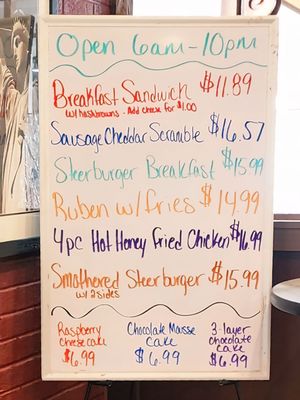 Open 6am-10pm
Breakfast Sandwich $11.89
w/ hashbrowns - Add cheese for $1.00
Sausage Cheddar Scramble $16.57
Steerburger Breakfast $15.99
Ruben w/fries $14.99
4pc Hot Honey Fried Chicken $16.99
Smothered Steerburger $15.99
w/ 2 sides
Raspberry
cheesecake
$6.99
Chocolate Mousse
Cake
$6.99
3-layer
chocolate
cake
$6.99